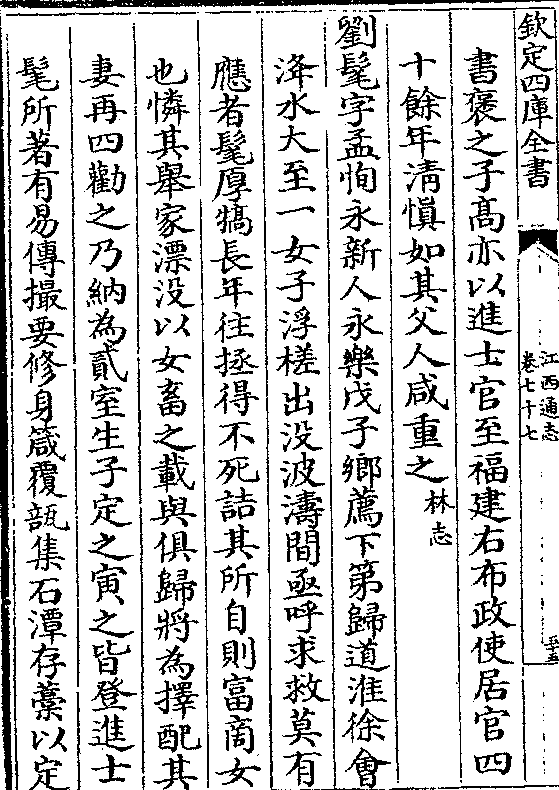 欽定四庫全書
江西通志
卷七十七
書褒之子髙亦以進士官至福建右布政使居官四
十餘年清慎如其父人咸重之林志
劉髦字孟恂永新人永樂戊子鄉薦下第歸道淮徐會
洚水大至一女子浮槎出没波濤間亟呼求救莫有
應者髦厚犒長年往拯得不死詰其所自則富商女
也憐其舉家漂没以女畜之載與俱歸將為擇配其
妻再四勸之乃納為貳室生子定之寅之皆登進士
髦所著有易傳撮要修身箴覆瓿集石潭存藁以定